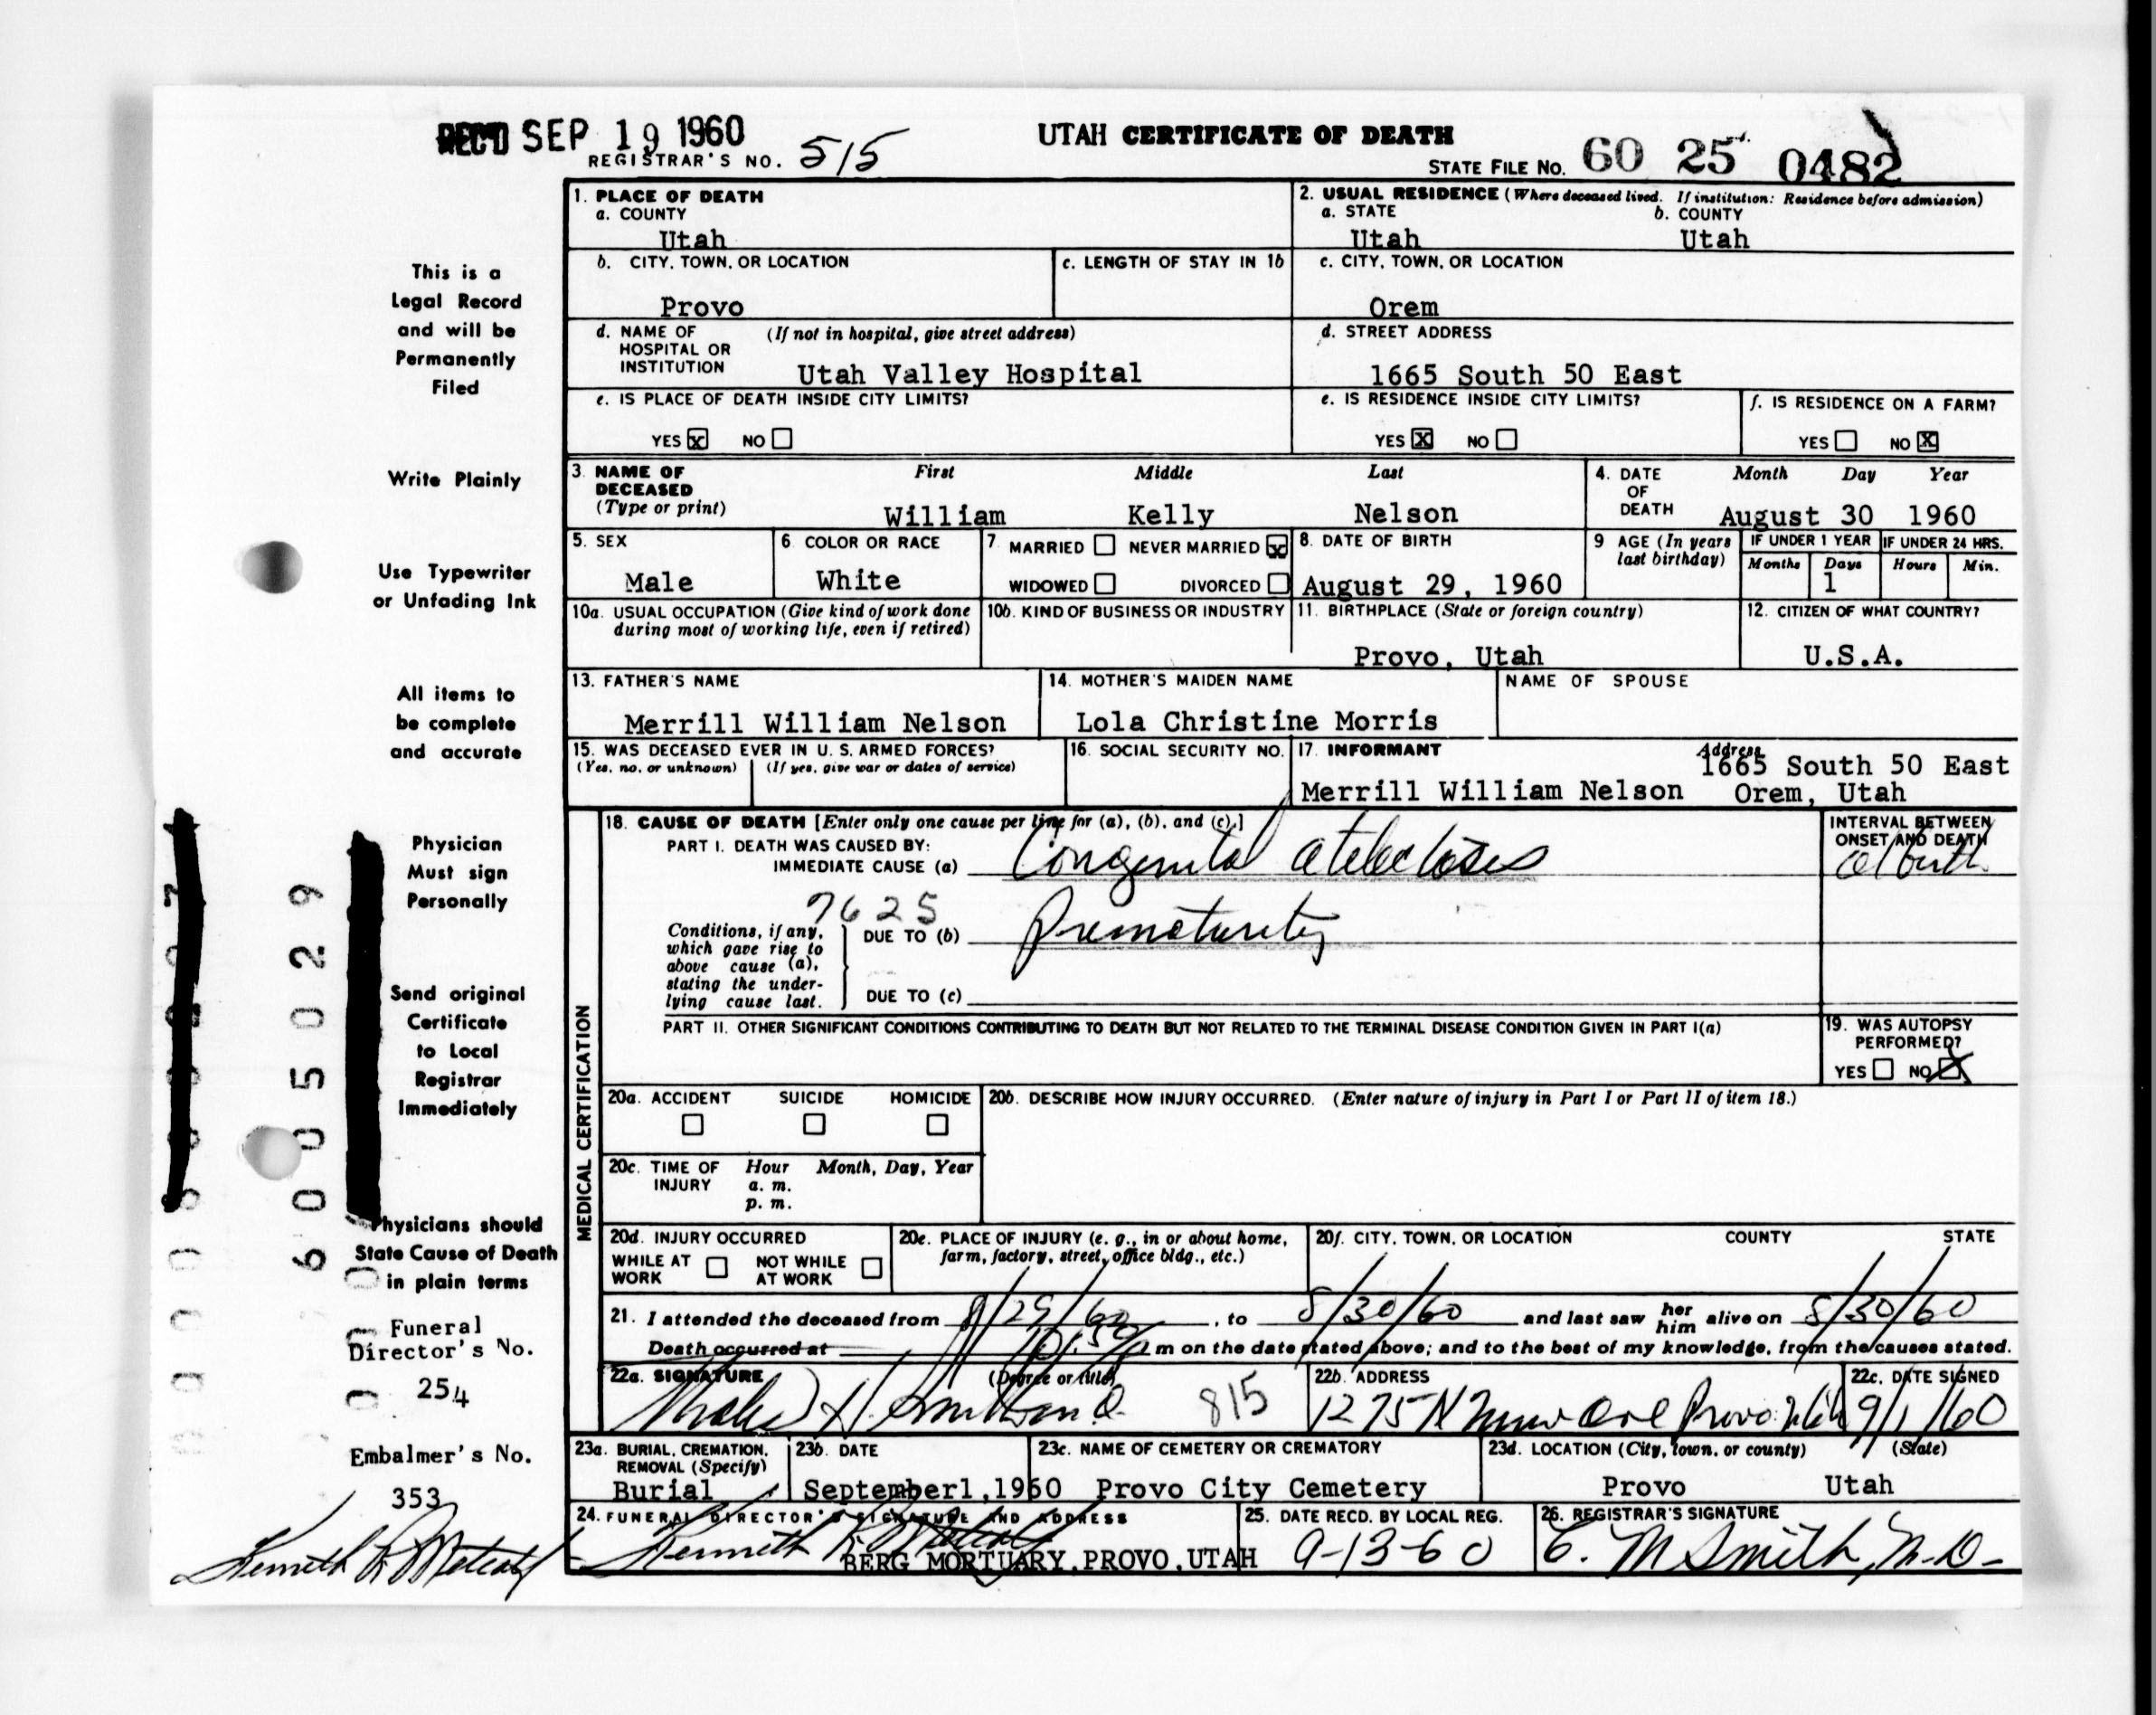 REC'D SEP 19 1960
UTAH CERTIFICATE OF DEATH
REGISTRAR'S NO. 515
STATE FILE NO. 60 25 0482
1. PLACE OF DEATH
a. COUNTY
Utah
2. USUAL RESIDENCE (Where deceased lived. If institution: Residence before admission)
a. STATE b. COUNTY
Utah Utah
b. CITY, TOWN, OR LOCATION
Provo
c. LENGTH OF STAY IN 1b
c. CITY, TOWN, OR LOCATION
Orem
d. NAME OF (If not in hospital, give street address)
HOSPITAL OR
INSTITUTION Utah Valley Hospital
d. STREET ADDRESS
1665 South 50 East
e. IS PLACE OF DEATH INSIDE CITY LIMITS?
YES X NO
e. IS RESIDENCE INSIDE CITY LIMITS?
YES X NO
f. IS RESIDENCE ON A FARM?
YES NO X
3. NAME OF First Middle Last
DECEASED
(Type or print) William Kelly Nelson
4. DATE Month Day Year
OF
DEATH August 30 1960
5. SEX
Male
6. COLOR OR RACE
White
7. MARRIED NEVER MARRIED X
WIDOWED DIVORCED
8. DATE OF BIRTH
August 29, 1960
9 AGE (In years
last birthday)
IF UNDER 1 YEAR IF UNDER 24 HRS.
Months Days Hours Min.
1
10a. USUAL OCCUPATION (Give kind of work done
during most of working life, even if retired)
10b. KIND OF BUSINESS OR INDUSTRY
11. BIRTHPLACE (State or foreign country)
Provo, Utah
12. CITIZEN OF WHAT COUNTRY?
U.S.A.
13. FATHER'S NAME
Merrill William Nelson
14. MOTHER'S MAIDEN NAME
Lola Christine Morris
NAME OF SPOUSE
15. WAS DECEASED EVER IN U. S. ARMED FORCES?
(Yes, no, or unknown) (If yes, give war or dates of service)
16. SOCIAL SECURITY NO.
17. INFORMANT Address
1665 South 50 East
Merrill William Nelson Orem, Utah
MEDICAL CERTIFICATION
18. CAUSE OF DEATH [Enter only one cause per line for (a), (b), and (c).]
PART I. DEATH WAS CAUSED BY:
IMMEDIATE CAUSE (a) Congenital atelectasis
INTERVAL BETWEEN
ONSET AND DEATH
at birth
7625
Conditions, if any,
which gave rise to
above cause (a),
stating the under-
lying cause last.
DUE TO (b) Prematurity
DUE TO (c)
PART II. OTHER SIGNIFICANT CONDITIONS CONTRIBUTING TO DEATH BUT NOT RELATED TO THE TERMINAL DISEASE CONDITION GIVEN IN PART I(a)
19. WAS AUTOPSY
PERFORMED?
YES NO X
20a. ACCIDENT SUICIDE HOMICIDE
20b. DESCRIBE HOW INJURY OCCURRED. (Enter nature of injury in Part I or Part II of item 18.)
20c. TIME OF Hour Month, Day, Year
INJURY a. m.
p. m.
20d. INJURY OCCURRED
WHILE AT NOT WHILE
WORK AT WORK
20e. PLACE OF INJURY (e. g., in or about home,
farm, factory, street, office bldg., etc.)
20f. CITY, TOWN, OR LOCATION COUNTY STATE
21. I attended the deceased from 8/29/60, to 8/30/60 and last saw her him alive on 8/30/60
Death occurred at m on the date stated above; and to the best of my knowledge, from the causes stated.
22a. SIGNATURE (Degree or title)
815
22b. ADDRESS
1275 N Provo Utah
22c. DATE SIGNED
9/1/60
23a. BURIAL, CREMATION,
REMOVAL (Specify)
Burial
23b. DATE
September1,1960
23c. NAME OF CEMETERY OR CREMATORY
Provo City Cemetery
23d. LOCATION (City, town, or county) (State)
Provo Utah
24. FUNERAL DIRECTOR'S SIGNATURE AND ADDRESS
Kenneth R. Metcalf
BERG MORTUARY, PROVO, UTAH
25. DATE RECD. BY LOCAL REG.
9-13-60
26. REGISTRAR'S SIGNATURE
C. M Smith, M.D.
This is a
Legal Record
and will be
Permanently
Filed
Write Plainly
Use Typewriter
or Unfading Ink
All items to
be complete
and accurate
Physician
Must sign
Personally
Send original
Certificate
to Local
Registrar
Immediately
Physicians should
State Cause of Death
in plain terms
Funeral
Director's No.
254
Embalmer's No.
353
Kenneth R. Metcalf
6005029